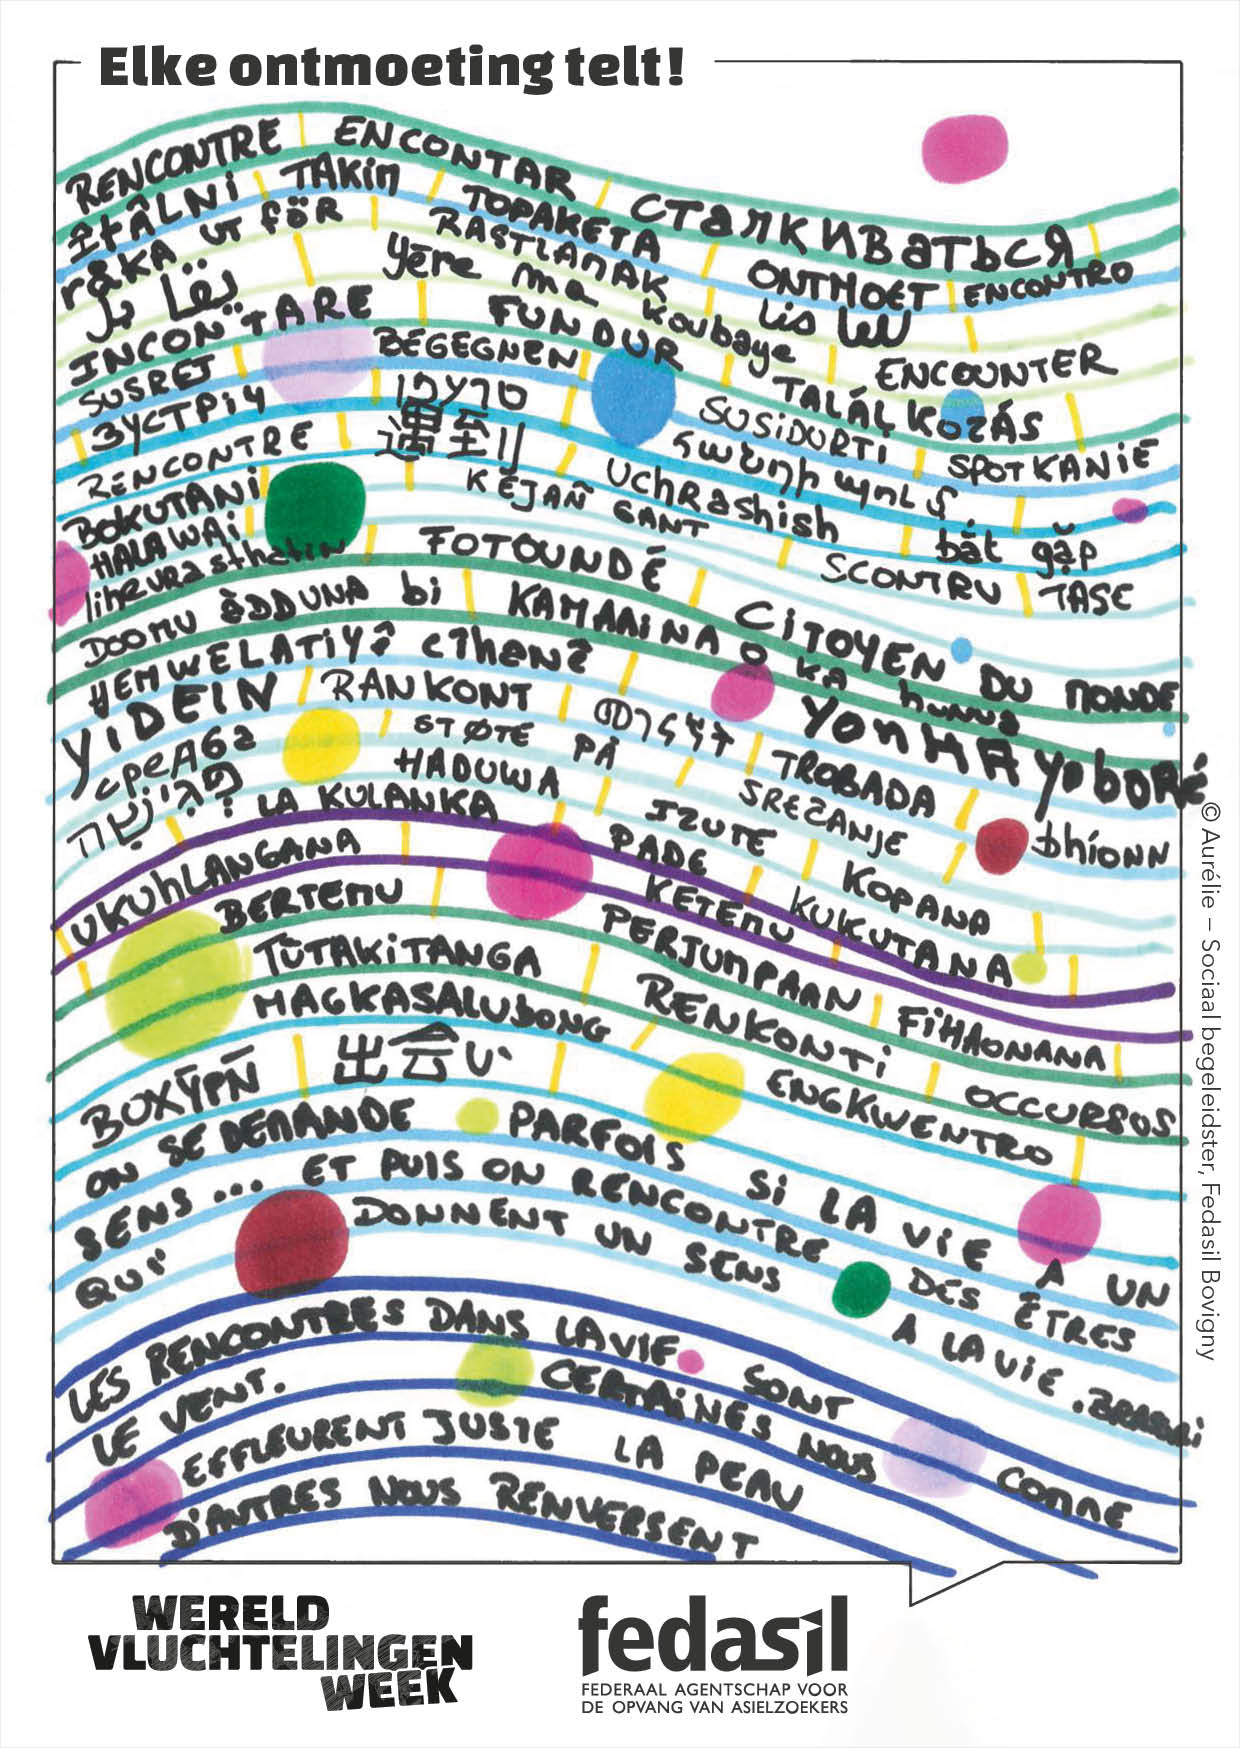 Elke ontmoeting telt!
RENCONTRE ENCONTAR СТАЛКИВАТЬСЯ
TAKIM TOPAKETA ONTMOET ENCONTRO
råKA UT föR RASTLAMAK
yēre ma koubaye ENCOUNTER
INCONTARE FUNDUR TALÁLKOZÁS
SUSRET BEGEGNEN SUSIDURTI SPOTKANIE
ЗУСТРІЧ
RENCONTRE 遇到 UCHRAShISH bắt gặp
BOKUTANI KEJAÑ GANT SCONTRU TASE
HALAWAI FOTOUNDÉ CITOYEN DU MONDE
DOOMU ÀDDUNA bi KAMANINA O ka hunna
HEMWELATIYÊ CÎHANÊ YonMA yoboré
YIDEIN RANKONT TROBADA bhíonn
среда STØTE PÅ SREČANJE
פגישה HADUWA IZUTE KOPANA
LA KULANKA PADE KUKUTANA
UKUHLANGANA KETEMU
BERTEMU PERJUMPAAN FIHAONANA
TŪTAKITANGA RENKONTI OCCURSOS
MAGKASALUBONG ENGKWENTRO
出会い
ON SE DEMANDE PARFOIS SI LA VIE A UN
SENS... ET PUIS ON RENCONTRE DES ÊTRES
QUI DONNENT UN SENS A LA VIE. BRASSAÏ
LES RENCONTRES DANS LA VIE SONT COMME
LE VENT. CERTAINES NOUS
EFFLEURENT JUSTE LA PEAU
D'AUTRES NOUS RENVERSENT
© Aurélie – Sociaal begeleidster, Fedasil Bovigny
WERELD
VLUCHTELINGEN
WEEK
fedasil
FEDERAAL AGENTSCHAP VOOR
DE OPVANG VAN ASIELZOEKERS